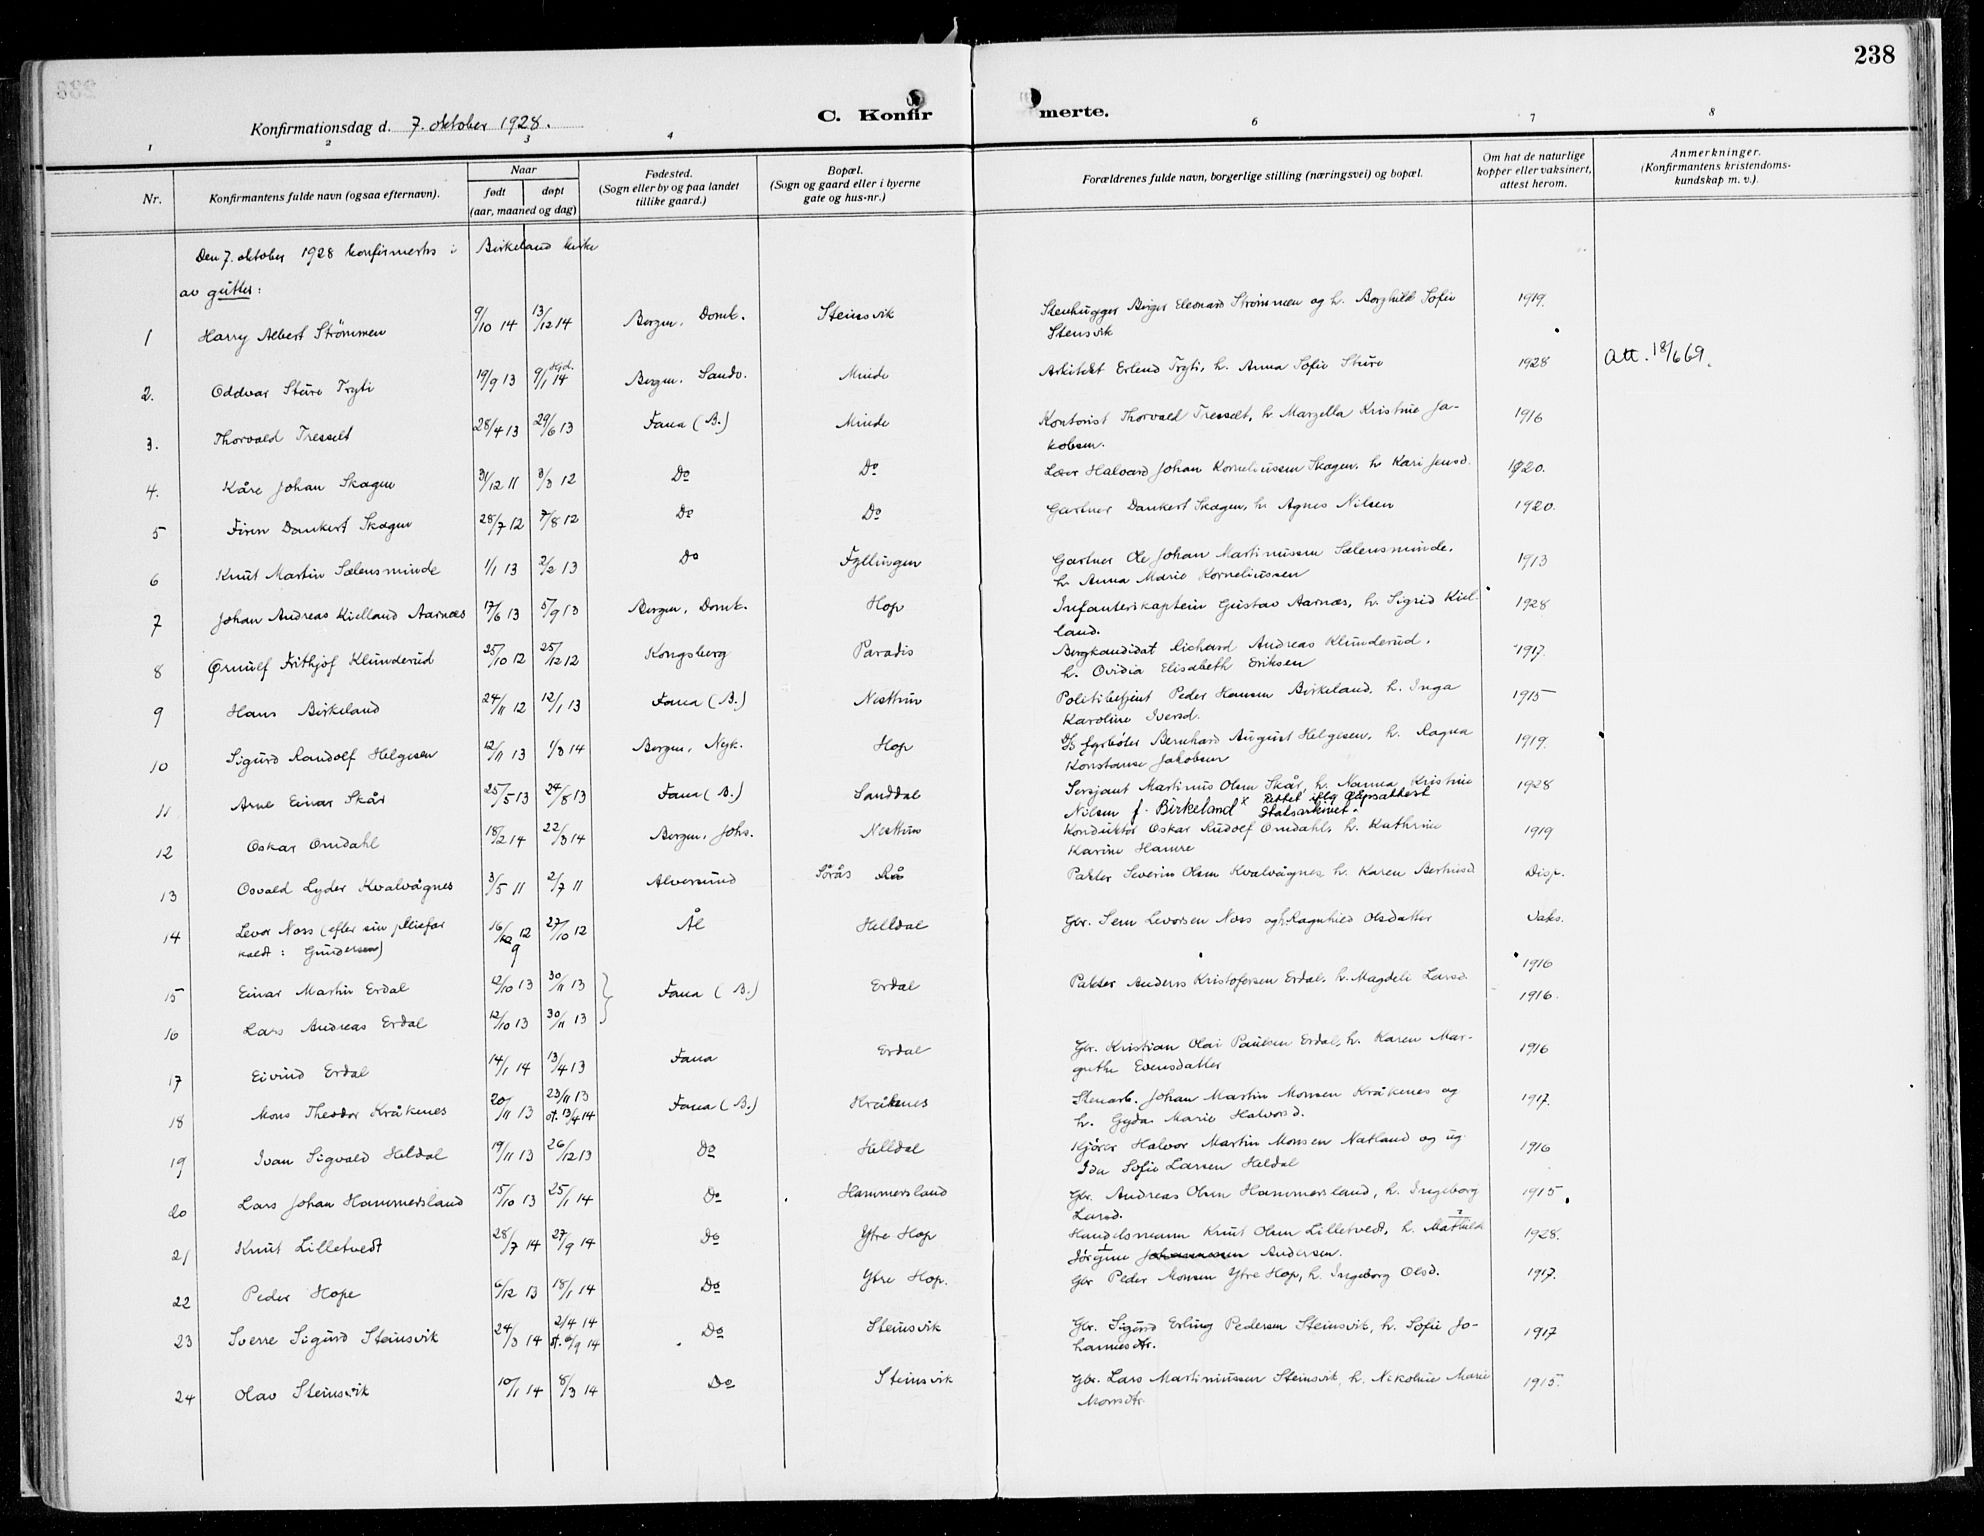 238
C. Konfirmerte.
Konfirmationsdag d. 7. oktober 1928.
1 2 3 4 6 7 8
Nr.
Konfirmantens fulde navn (ogsaa efternavn).
Naar
født døpt
(aar, maaned og dag)
Fødested.
(Sogn eller by og paa landet
tillike gaard.)
Bopæl.
(Sogn og gaard eller i byerne
gate og hus-nr.)
Forældrenes fulde navn, borgerlige stilling (næringsvei) og bopæl.
Om hat de naturlige
kopper eller vaksinert,
attest herom.
Anmerkninger.
(Konfirmantens kristendoms-
kundskap m. v.).
Den 7. oktober 1928 konfirmertes i Birkeland kirke
av gutter:
1 Harry Albert Strömmen 9/10 14 13/12 14 Bergen, Domk. Steinsvik Stenhugger Birger Eleonard Strömmen og h. Borghild Sofie 1919.
Stensvik
2. Oddvar Sture Tryti 19/9 13 9/1 14 Bergen, Sandv. Minde Arkitekt Erlend Tryti, h. Anna Sofie Sture 1928 Att. 18/6 69.
3. Thorvald Tresselt 28/4 13 29/6 13 Fana (B.) Minde Kontorist Thorvald Tresselt, h. Marzella Kristine Ja- 1916
kobsen.
4. Kåre Johan Skagen 31/12 11 3/3 12 Do Do Halvard Johan Korneliussen Skagen, h. Kari Jensd. 1920.
5 Finn Dankert Skagen 28/7 12 7/8 12 Do Do Gartner Dankert Skagen, h. Agnes Nilsen 1920.
6 Knut Martin Sælensminde 1/1 13 2/2 13 Do Fyllingen Gartner Ole Johan Martinussen Sælensminde, 1913
h. Anna Marie Korneliussen
7 Johan Andreas Kielland Aarnæs 17/6 13 5/9 13 Bergen, Domk. Hop Infanterikaptein Gustav Aarnæs, h. Sigrid Kiel- 1928
land.
8 Ørnulf Frithjof Klunderud 25/10 12 25/12 12 Kongsberg Paradis Bergkandidat Richard Andreas Klunderud, 1917.
h. Ovidia Elisabeth Eriksen
9 Hans Birkeland 24/11 12 12/1 13 Fana (B.) Nesttun Politibetjent Peder Hansen Birkeland, h. Inga 1915
Karoline Iversd.
10 Sigurd Randolf Helgesen 12/11 13 1/3 14 Bergen, Nyk. Hop fyrbøter Bernhard August Helgesen, h. Ragna 1919.
Konstanse Jakobsen
11 Arne Einar Skår 25/5 13 24/8 13 Fana (B.) Sanddal Sersjant Martinus Olsen Skår, h. Nanna Kristine 1928
Nilsen f. Birkeland x Rettet iflg dåpsattest
Statsarkivet.
12 Oskar Omdahl 18/2 14 22/3 14 Bergen, Johs. Nesttun Konduktør Oskar Rudolf Omdahl, h. Kathrine 1919
Karine Hamre
13 Osvald Lyder Kvalvågnes 3/5 11 2/7 11 Alversund Sörås Rå Pakter Severin Olsen Kvalvågnes, h. Karen Berntsd. Disp.
14 Levor Noss (efter sin pleiefar 16/9 12 27/10 12 Ål Helldal Gbr. Sem Levorsen Noss og h. Ragnhild Olsdatter Vaks.
kaldt: Gundersen)
15 Einar Martin Erdal 12/10 13 30/11 13 Fana (B.) Erdal Pakter Anders Kristofersen Erdal, h. Magdeli Larsd. 1916
16 Lars Andreas Erdal 12/10 13 30/11 13 1916.
17 Eivind Erdal 14/1 14 13/4 13 Fana Erdal Gbr. Kristian Olai Paulsen Erdal, h. Karen Mar- 1916
grethe Evensdatter
18 Mons Theodor Kråkenes 20/11 13 23/11 13 Fana (B.) Kråkenes Stenarb. Johan Martin Monsen Kråkenes og 1917.
st. 13/4 14 h. Gyda Marie Halvorsd.
19 Ivan Sigvald Heldal 19/11 13 26/12 13 Do Helldal Kjører Halvor Martin Monsen Natland og ug. 1916
Ida Sofie Larsen Heldal
20 Lars Johan Hammersland 15/10 13 25/1 14 Do Hammersland Gbr. Andreas Olsen Hammersland, h. Ingeborg 1915
Larsd.
21 Knut Lilletvedt 28/7 14 27/9 14 Do Ytre Hop Handelsmann Knut Olsen Lilletvedt, h. Mathilde 1928.
Jørgine Johannessen Andersen.
22 Peder Hope 6/12 13 18/1 14 Do Ytre Hop. Gbr Peder Monsen Ytre Hop, h. Ingeborg Olsd. 1917.
23 Sverre Sigurd Steinsvik 24/3 14 2/4 14 Do Steinsvik Gbr. Sigurd Erling Pedersen Steinsvik, h. Sofie Jo- 1917
st. 6/9 14 hannesdtr.
24 Olav Steinsvik 10/1 14 8/3 14 Do Steinsvik Gbr. Lars Martinussen Steinsvik, h. Nikoline Marie 1915.
Monsdtr.